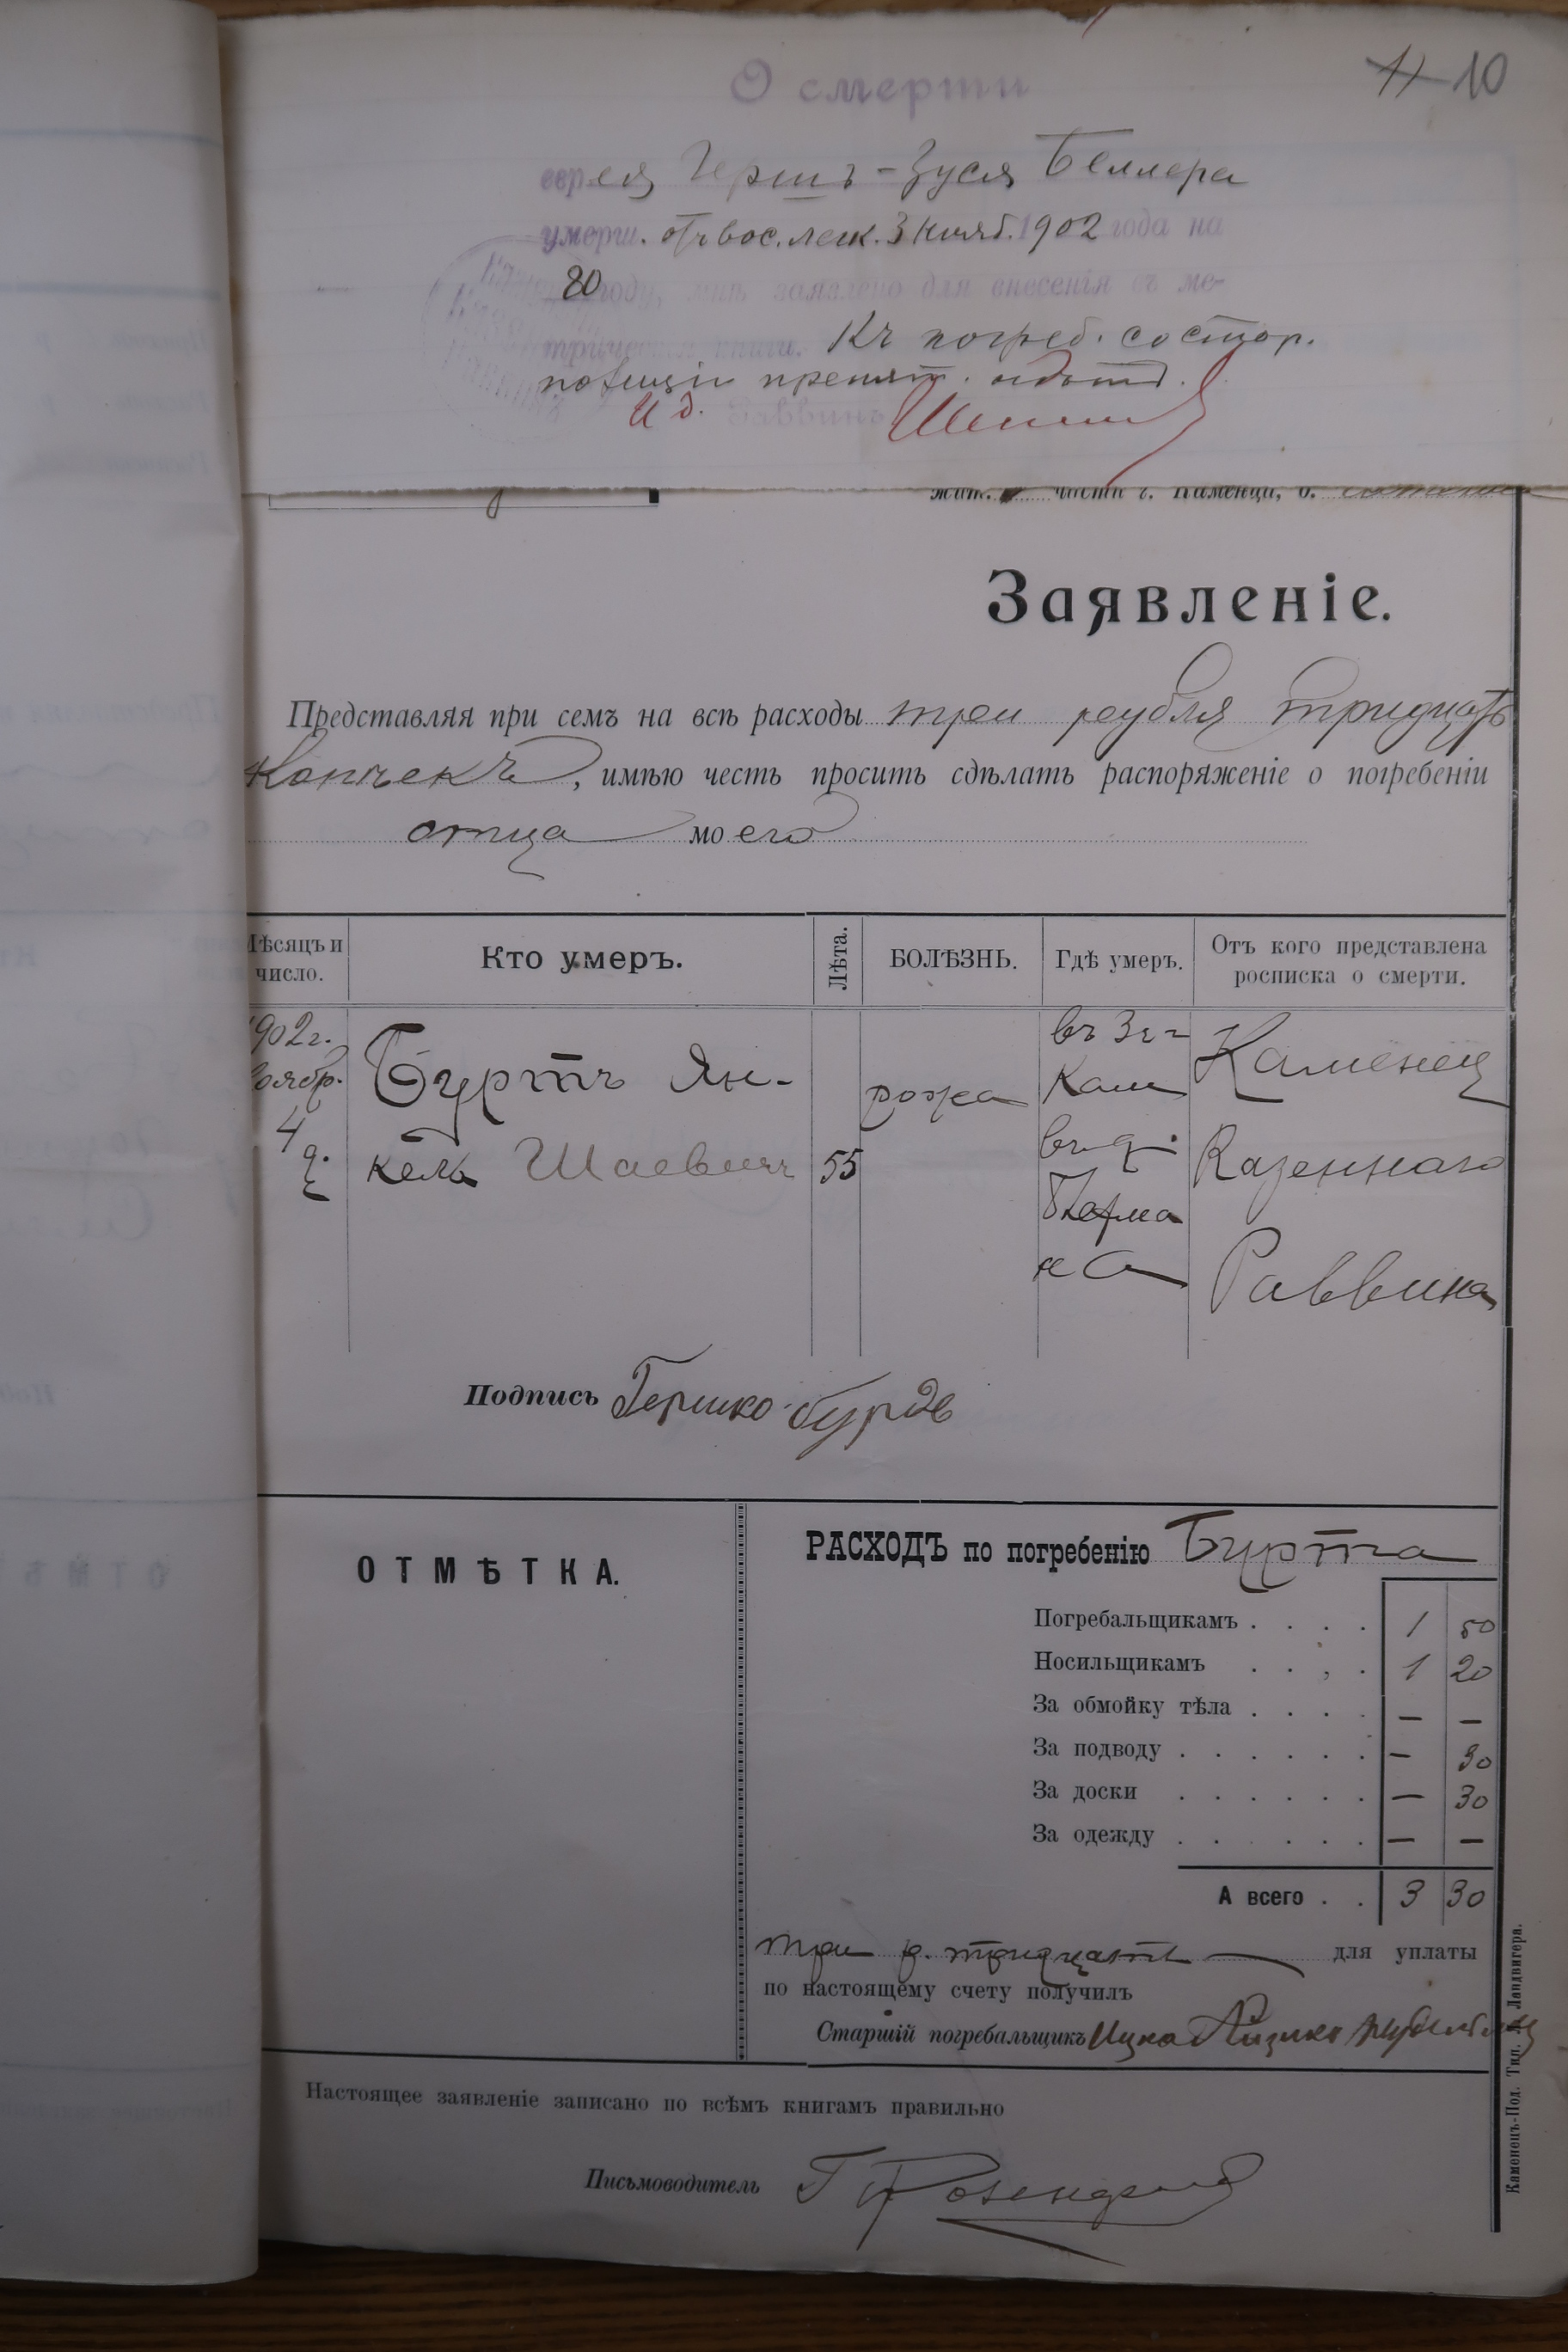 О смерти
11 10
еврея Гершъ-Зуся Беллера
умерш. отъ вос. легк. 3 Нояб. 1902 года на
80 году, мнѣ заявлено для внесенія въ ме-
трическія книги. Къ погреб. со стор.
полиціи препят. нѣтъ.
И д. Раввинъ
жит. части г. Каменца, о.
Заявленіе.
Представляя при семъ на всѣ расходы три рубля тридцать
копѣекъ, имѣю честь просить сдѣлать распоряженіе о погребеніи
отца моего
Мѣсяцъ и число. Кто умеръ. Лѣта. БОЛѢЗНЬ. Гдѣ умеръ. Отъ кого представлена росписка о смерти.
1902 г. Ноябр. 4 д. Буртъ Ян-кель Шаевичъ 55 рожа Каменец Казеннаго Раввина
Подпись Гершко Бурдъ
ОТМѢТКА.
РАСХОДЪ по погребенію Бурта
Погребальщикамъ . . . . 1 50
Носильщикамъ . . , . 1 20
За обмойку тѣла . . . . — —
За подводу . . . . . . — 30
За доски . . . . . . — 30
За одежду . . . . . . — —
А всего . . 3 30
три р. тридцать для уплаты
по настоящему счету получилъ
Старшій погребальщикъ Ицко Айзикъ
Настоящее заявленіе записано по всѣмъ книгамъ правильно
Письмоводитель
Каменецъ-Под. Тип. Ландвигера.